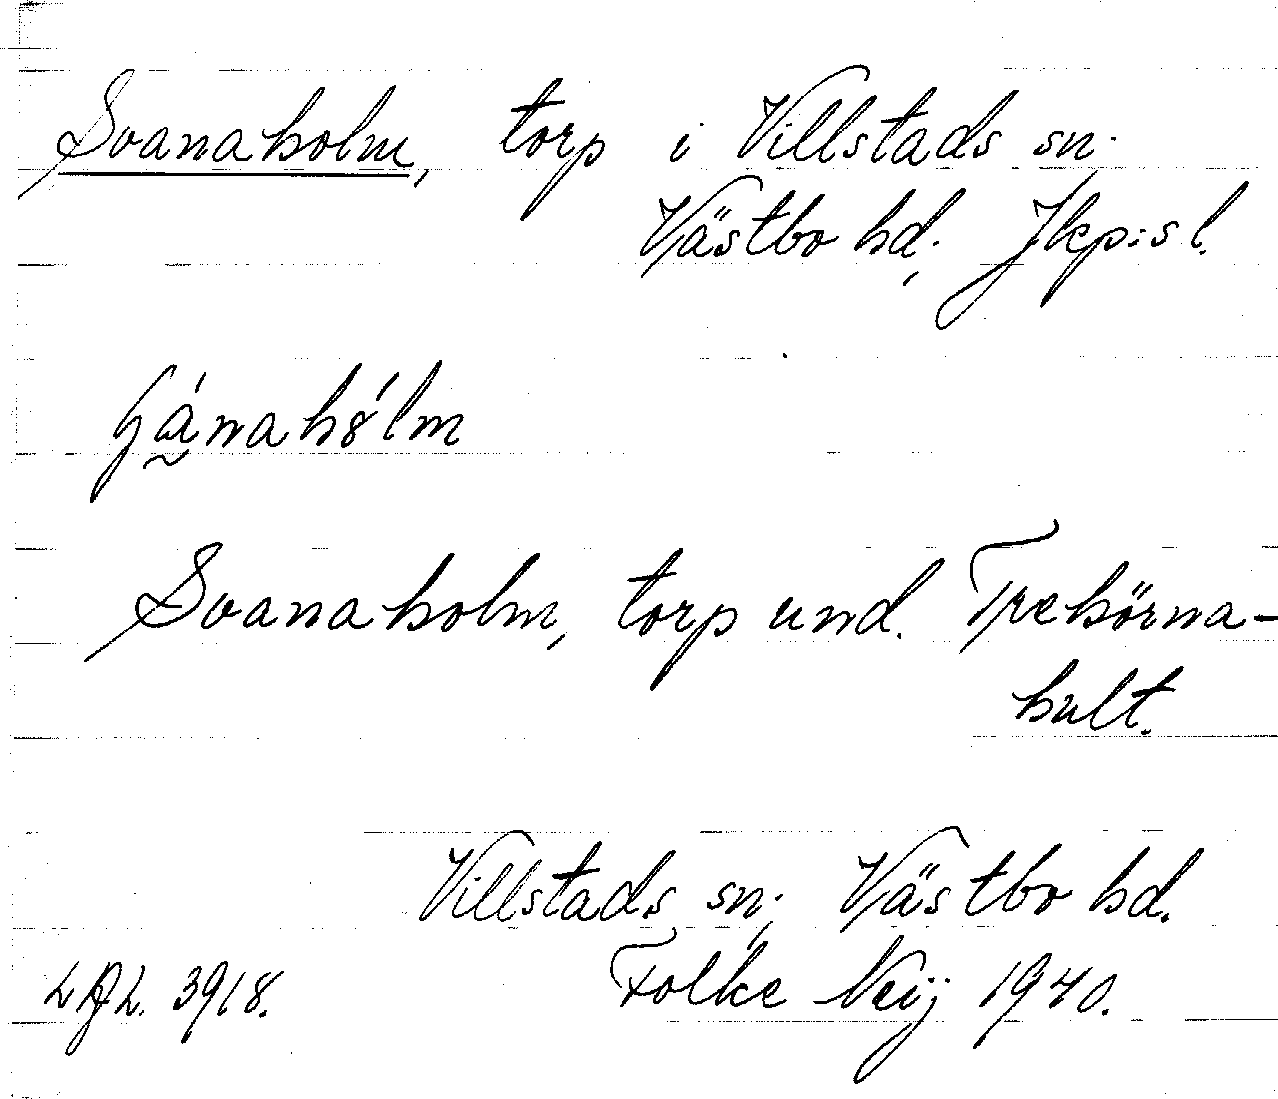 Svanaholm, torp i Villstads sn.
Västbo hd. Jkp:s l.
Svanaholm, torp und. Trehörna-
hult.
Villstads sn. Västbo hd.
Folke Neij 1940.
3918.